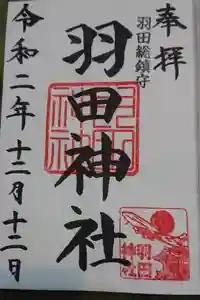 奉拝
羽田総鎮守
羽田神社
令和二年十二月十二日
羽田神社